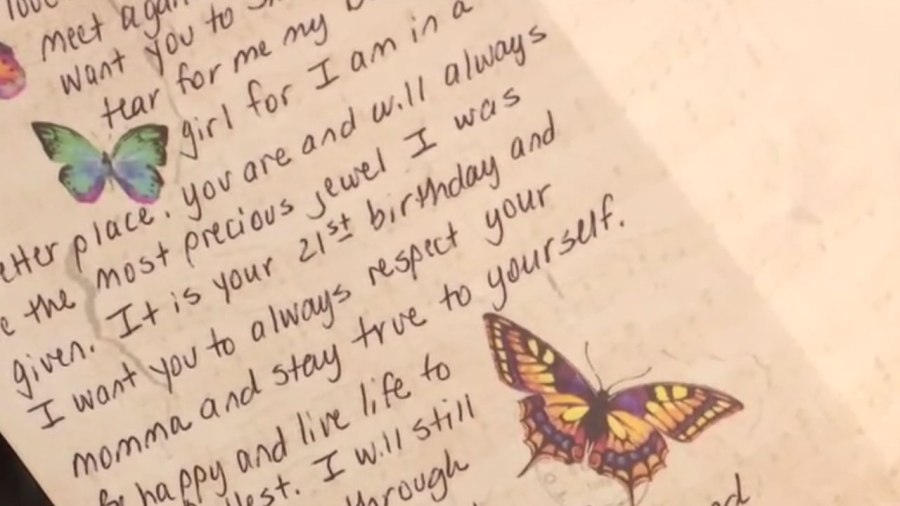 meet again
want you to
tear for me my
girl for I am in a
etter place. you are and will always
e the most precious jewel I was
given. It is your 21st birthday and
I want you to always respect your
momma and stay true to yourself.
Be happy and live life to
I will still
through